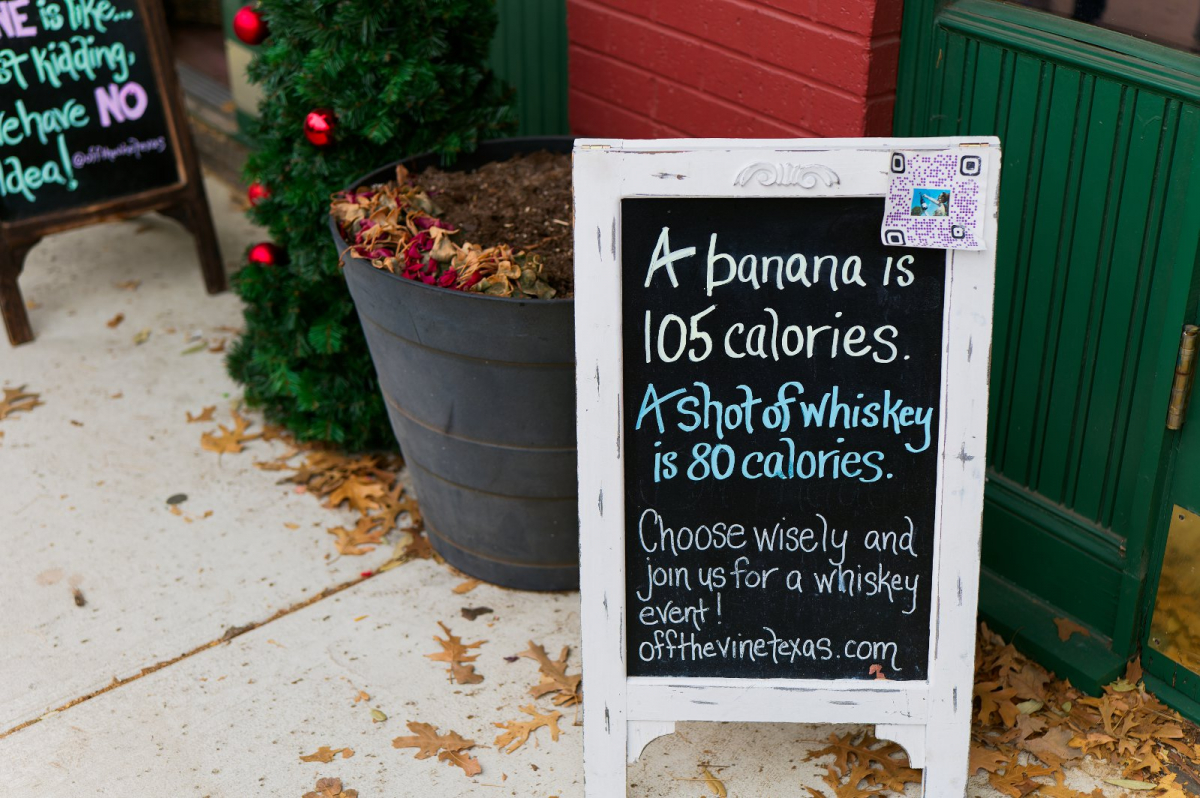 NE is like...
st kidding,
We have NO
Idea!
@offthevinetexas
A banana is
105 calories.
A shot of whiskey
is 80 calories.
Choose wisely and
join us for a whiskey
event!
offthevinetexas.com